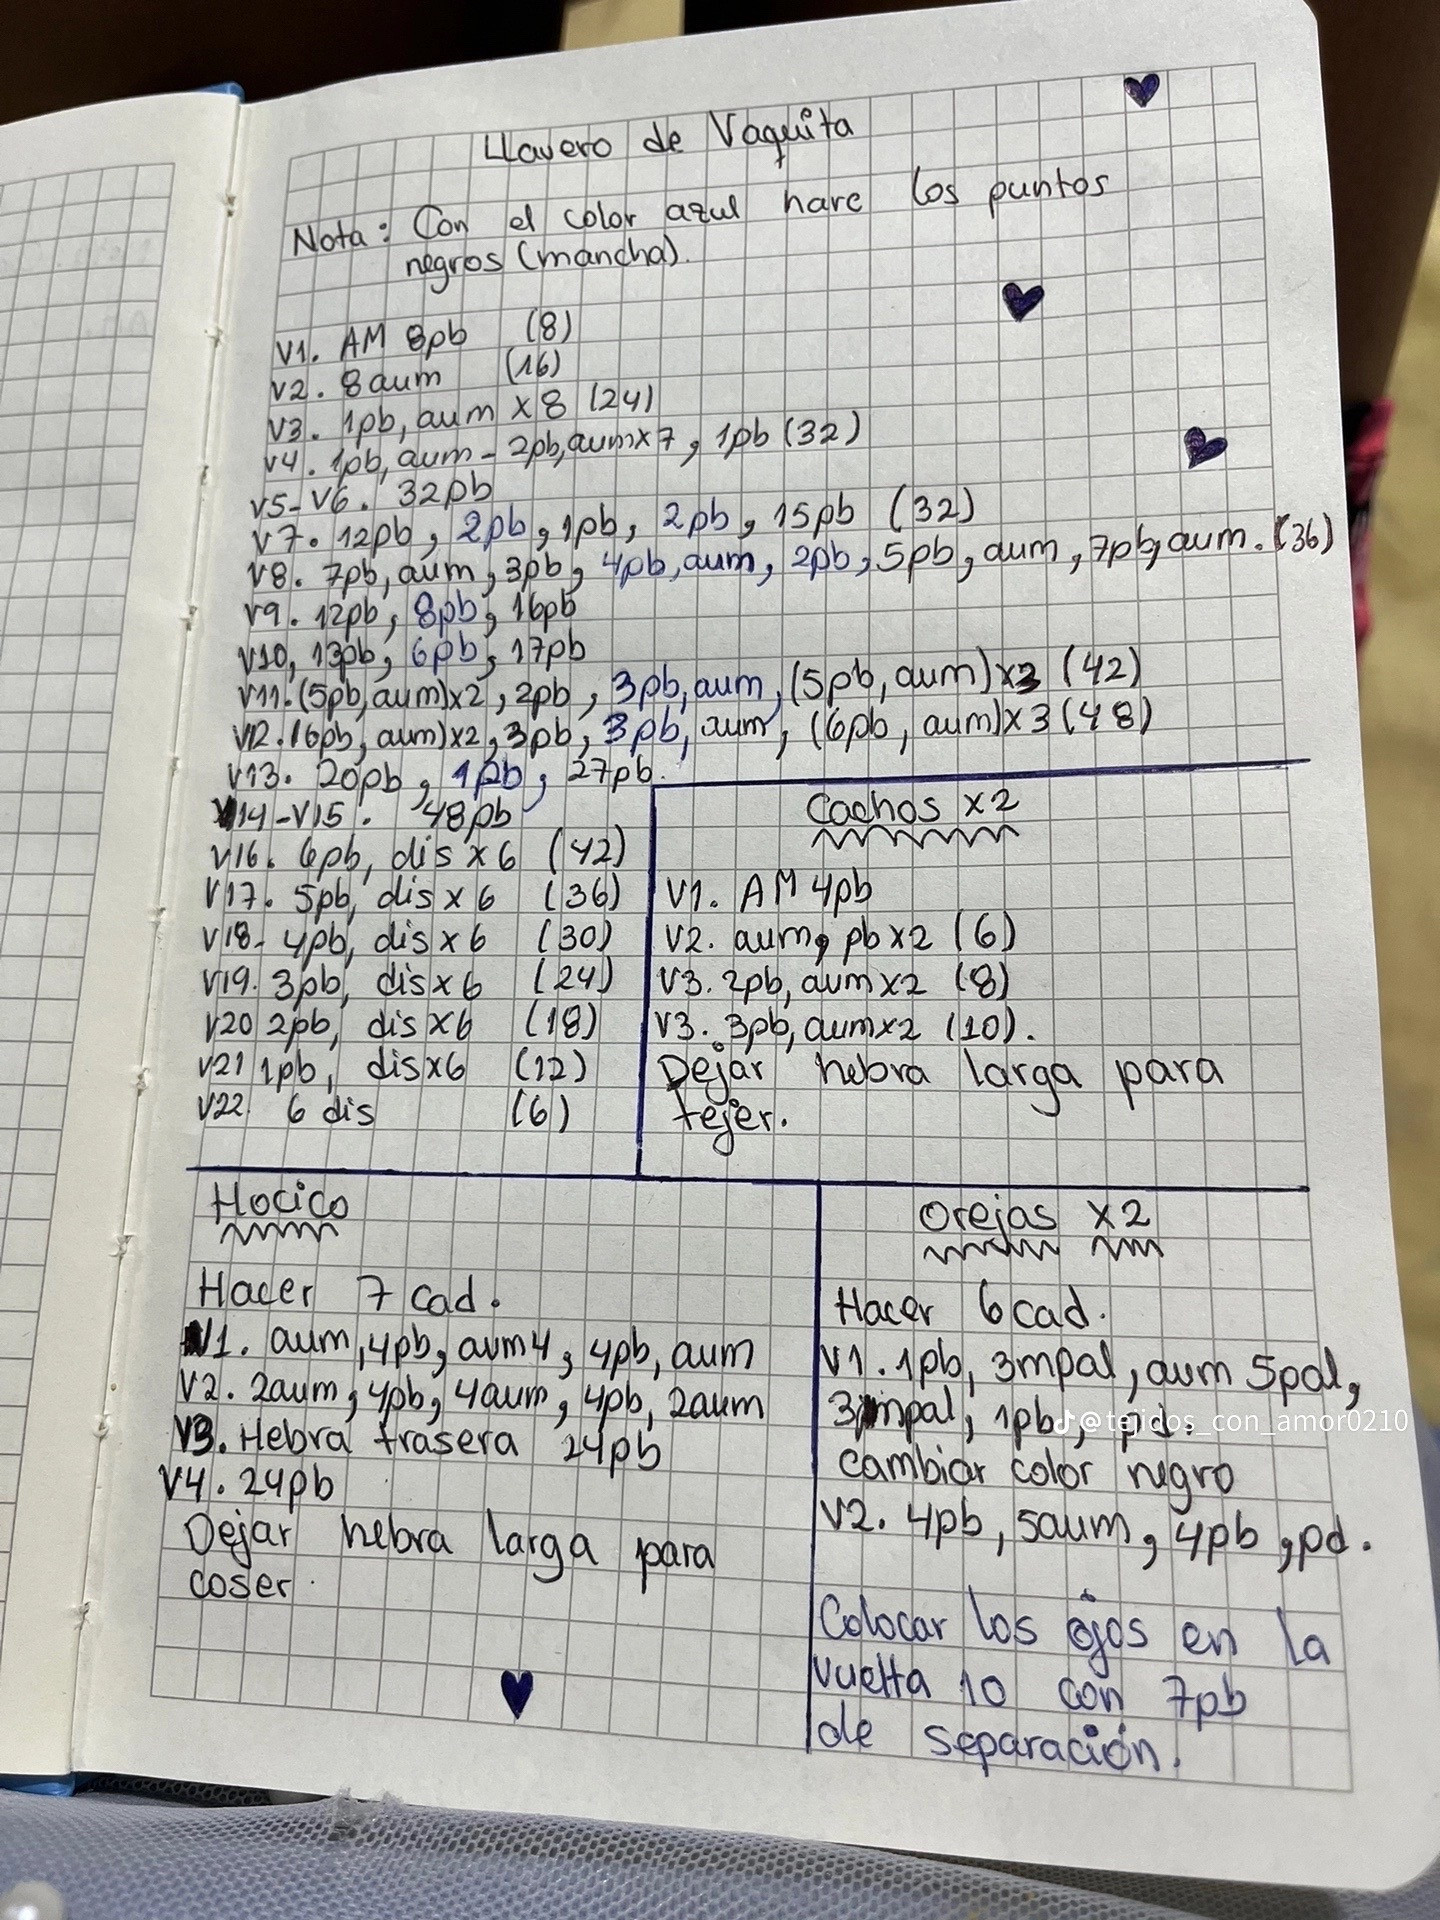 Llavero de Vaquita
Nota: Con el color azul hare los puntos
negros (mancha).
V1. AM 8pb (8)
V2. 8 aum (16)
V3. 1pb, aum x 8 (24)
V4. 1pb, aum - 2pb, aum x 7, 1pb (32)
V5-V6. 32pb
V7. 12pb, 2pb, 1pb, 2pb, 15pb (32)
V8. 7pb, aum, 3pb, 4pb, aum, 2pb, 5pb, aum, 7pb, aum. (36)
V9. 12pb, 8pb, 16pb
V10, 13pb, 6pb, 17pb
V11. (5pb, aum) x2, 2pb, 3pb, aum, (5pb, aum) x3 (42)
V12. (6pb, aum) x2, 3pb, 3pb, aum, (6pb, aum) x 3 (48)
V13. 20pb, 1pb, 27pb.
V14-V15. 48pb
V16. 6pb, dis x 6 (42)
V17. 5pb, dis x 6 (36)
V18- 4pb, dis x 6 (30)
V19. 3pb, dis x 6 (24)
V20 2pb, dis x6 (18)
V21 1pb, dis x6 (12)
V22 6 dis (6)
Cachos x 2
V1. AM 4pb
V2. aum, pb x 2 (6)
V3. 2pb, aum x 2 (8)
V3. 3pb, aum x 2 (10).
Dejar hebra larga para
tejer.
Hocico
Hacer 7 cad.
V1. aum, 4pb, aum 4, 4pb, aum
V2. 2aum, 4pb, 4aum, 4pb, 2aum
V3. Hebra trasera 24pb
V4. 24pb
Dejar hebra larga para
coser.
Orejas x 2
Hacer 6 cad.
V1. 1pb, 3mpal, aum 5pal,
3mpal, 1pb, pd.
@tejidos_con_amor0210
cambiar color negro
V2. 4pb, 5aum, 4pb, pd.
Colocar los ojos en la
vuelta 10 con 7pb
de separación.